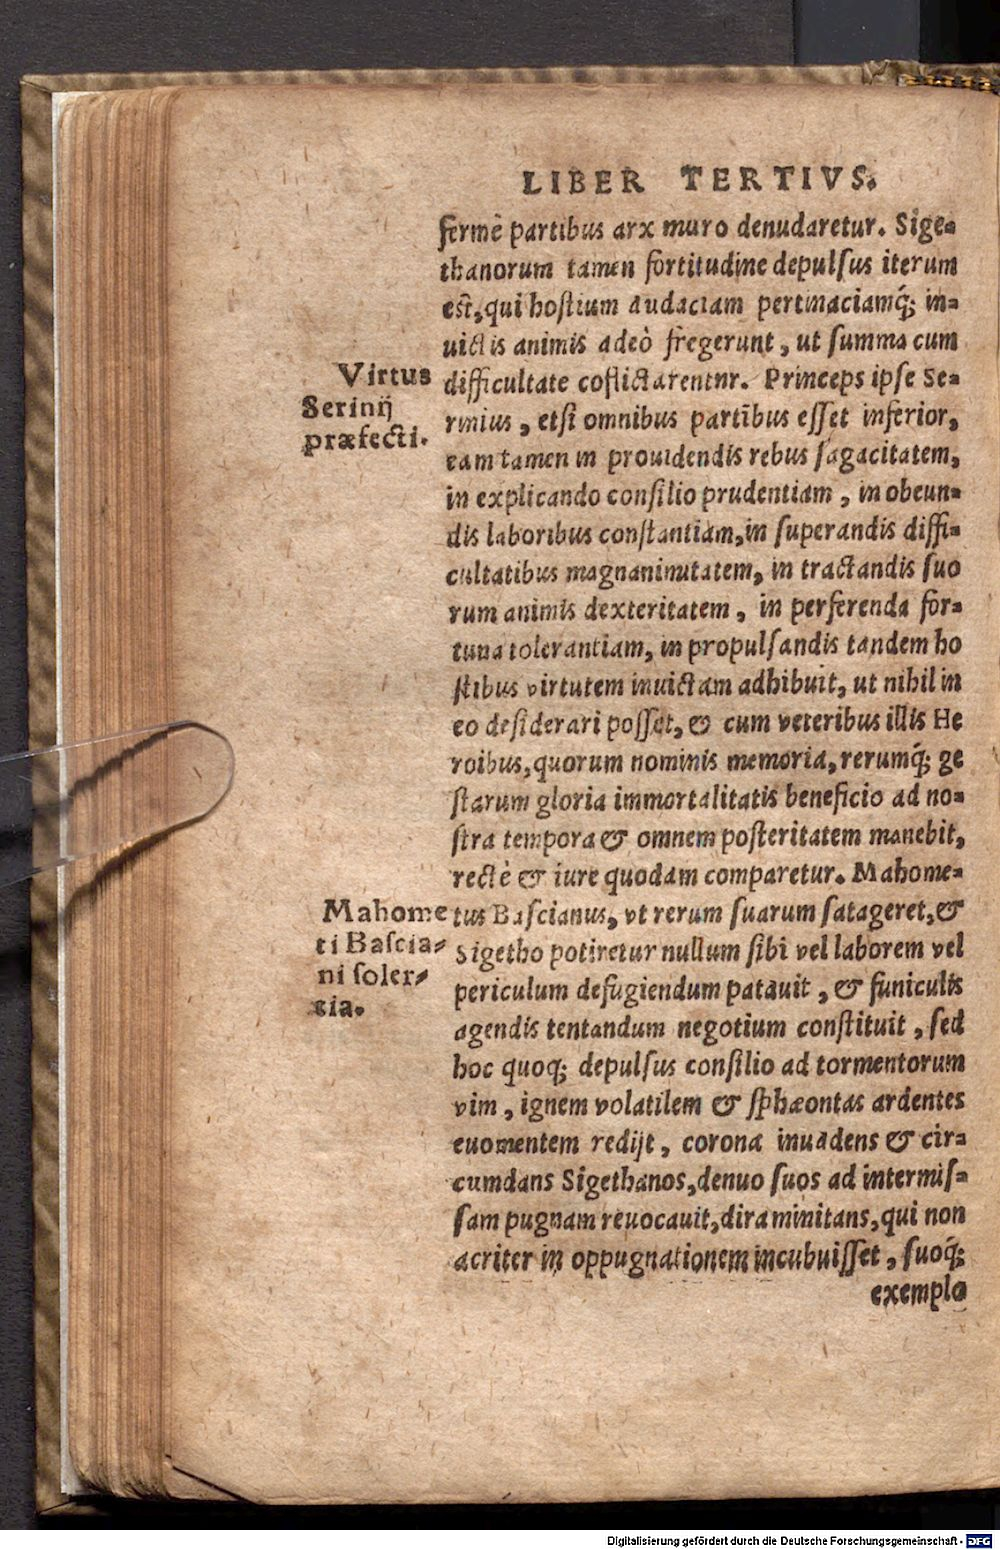 LIBER TERTIVS.
fermè partibus arx muro denudaretur. Sige-
thanorum tamen fortitudine depulsus iterum
est, qui hostium audaciam pertinaciamq́; in-
uictis animis adeò fregerunt, ut summa cum
difficultate cōflictarentnr. Princeps ipse Se-
rinius, etsi omnibus partibus esset inferior,
eam tamen in prouidendis rebus sagacitatem,
in explicando consilio prudentiam, in obeun-
dis laboribus constantiam, in superandis diffi-
cultatibus magnanimitatem, in tractandis suo
rum animis dexteritatem, in perferenda for-
tuna tolerantiam, in propulsandis tandem ho
stibus virtutem inuictam adhibuit, ut nihil in
eo desiderari posset, & cum veteribus illis He
roibus, quorum nominis memoria, rerumq́; ge
starum gloria immortalitatis beneficio ad no-
stra tempora & omnem posteritatem manebit,
rectè & iure quodam comparetur. Mahome-
tus Bascianus, vt rerum suarum satageret, &
Sigetho potiretur nullum sibi vel laborem vel
periculum defugiendum putauit, & funiculis
agendis tentandum negotium constituit, sed
hoc quoq; depulsus consilio ad tormentorum
vim, ignem volatilem & sphæontas ardentes
euomentem redijt, corona inuadens & cir-
cumdans Sigethanos, denuo suos ad intermis-
sam pugnam reuocauit, dira minitans, qui non
acriter in oppugnationem incubuisset, suoq́;
exemplo
Virtus
Serinij
præfecti.
Mahome
ti Bascia-
ni soler-
tia.
Digitalisierung gefördert durch die Deutsche Forschungsgemeinschaft - DFG